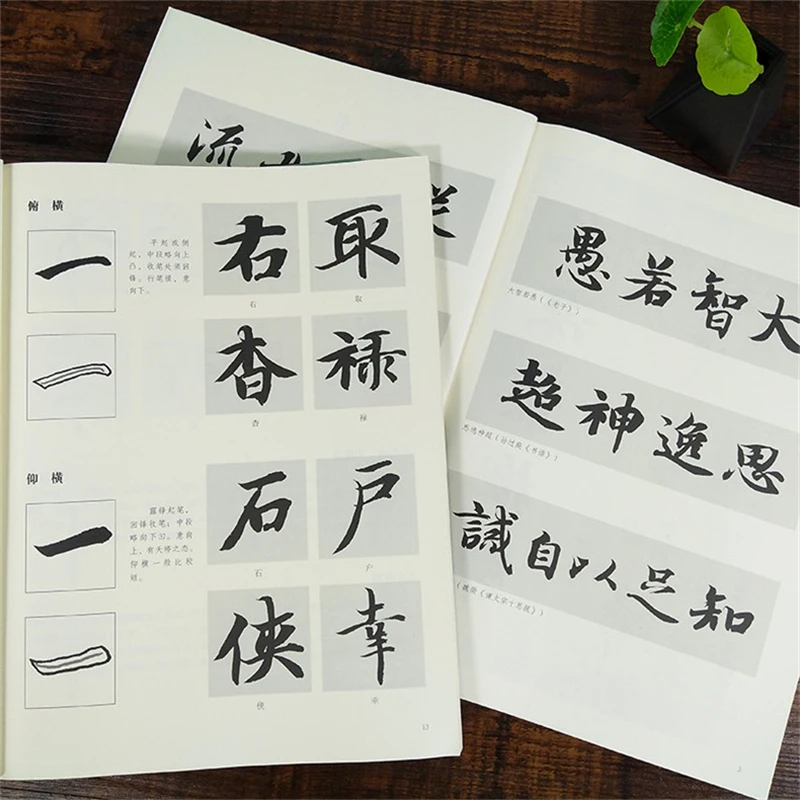 俯 横
一
平起或侧
起，中段略向上
凸，收笔处须回
锋。行笔缓，意
向下。
右 取
右 取
杳 禄
杳 禄
仰 横
一
露锋起笔，
回锋收笔；中段
略向下凹。意向
上，
仰横一般比较
短。
石 户
石 户
侠 幸
侠 幸
13
流
愚若智大
大智若愚（《老子》）
超神逸思
思逸神超（孙过庭《书谱》）
誡自以足知
（魏徵《谏太宗十思疏》）